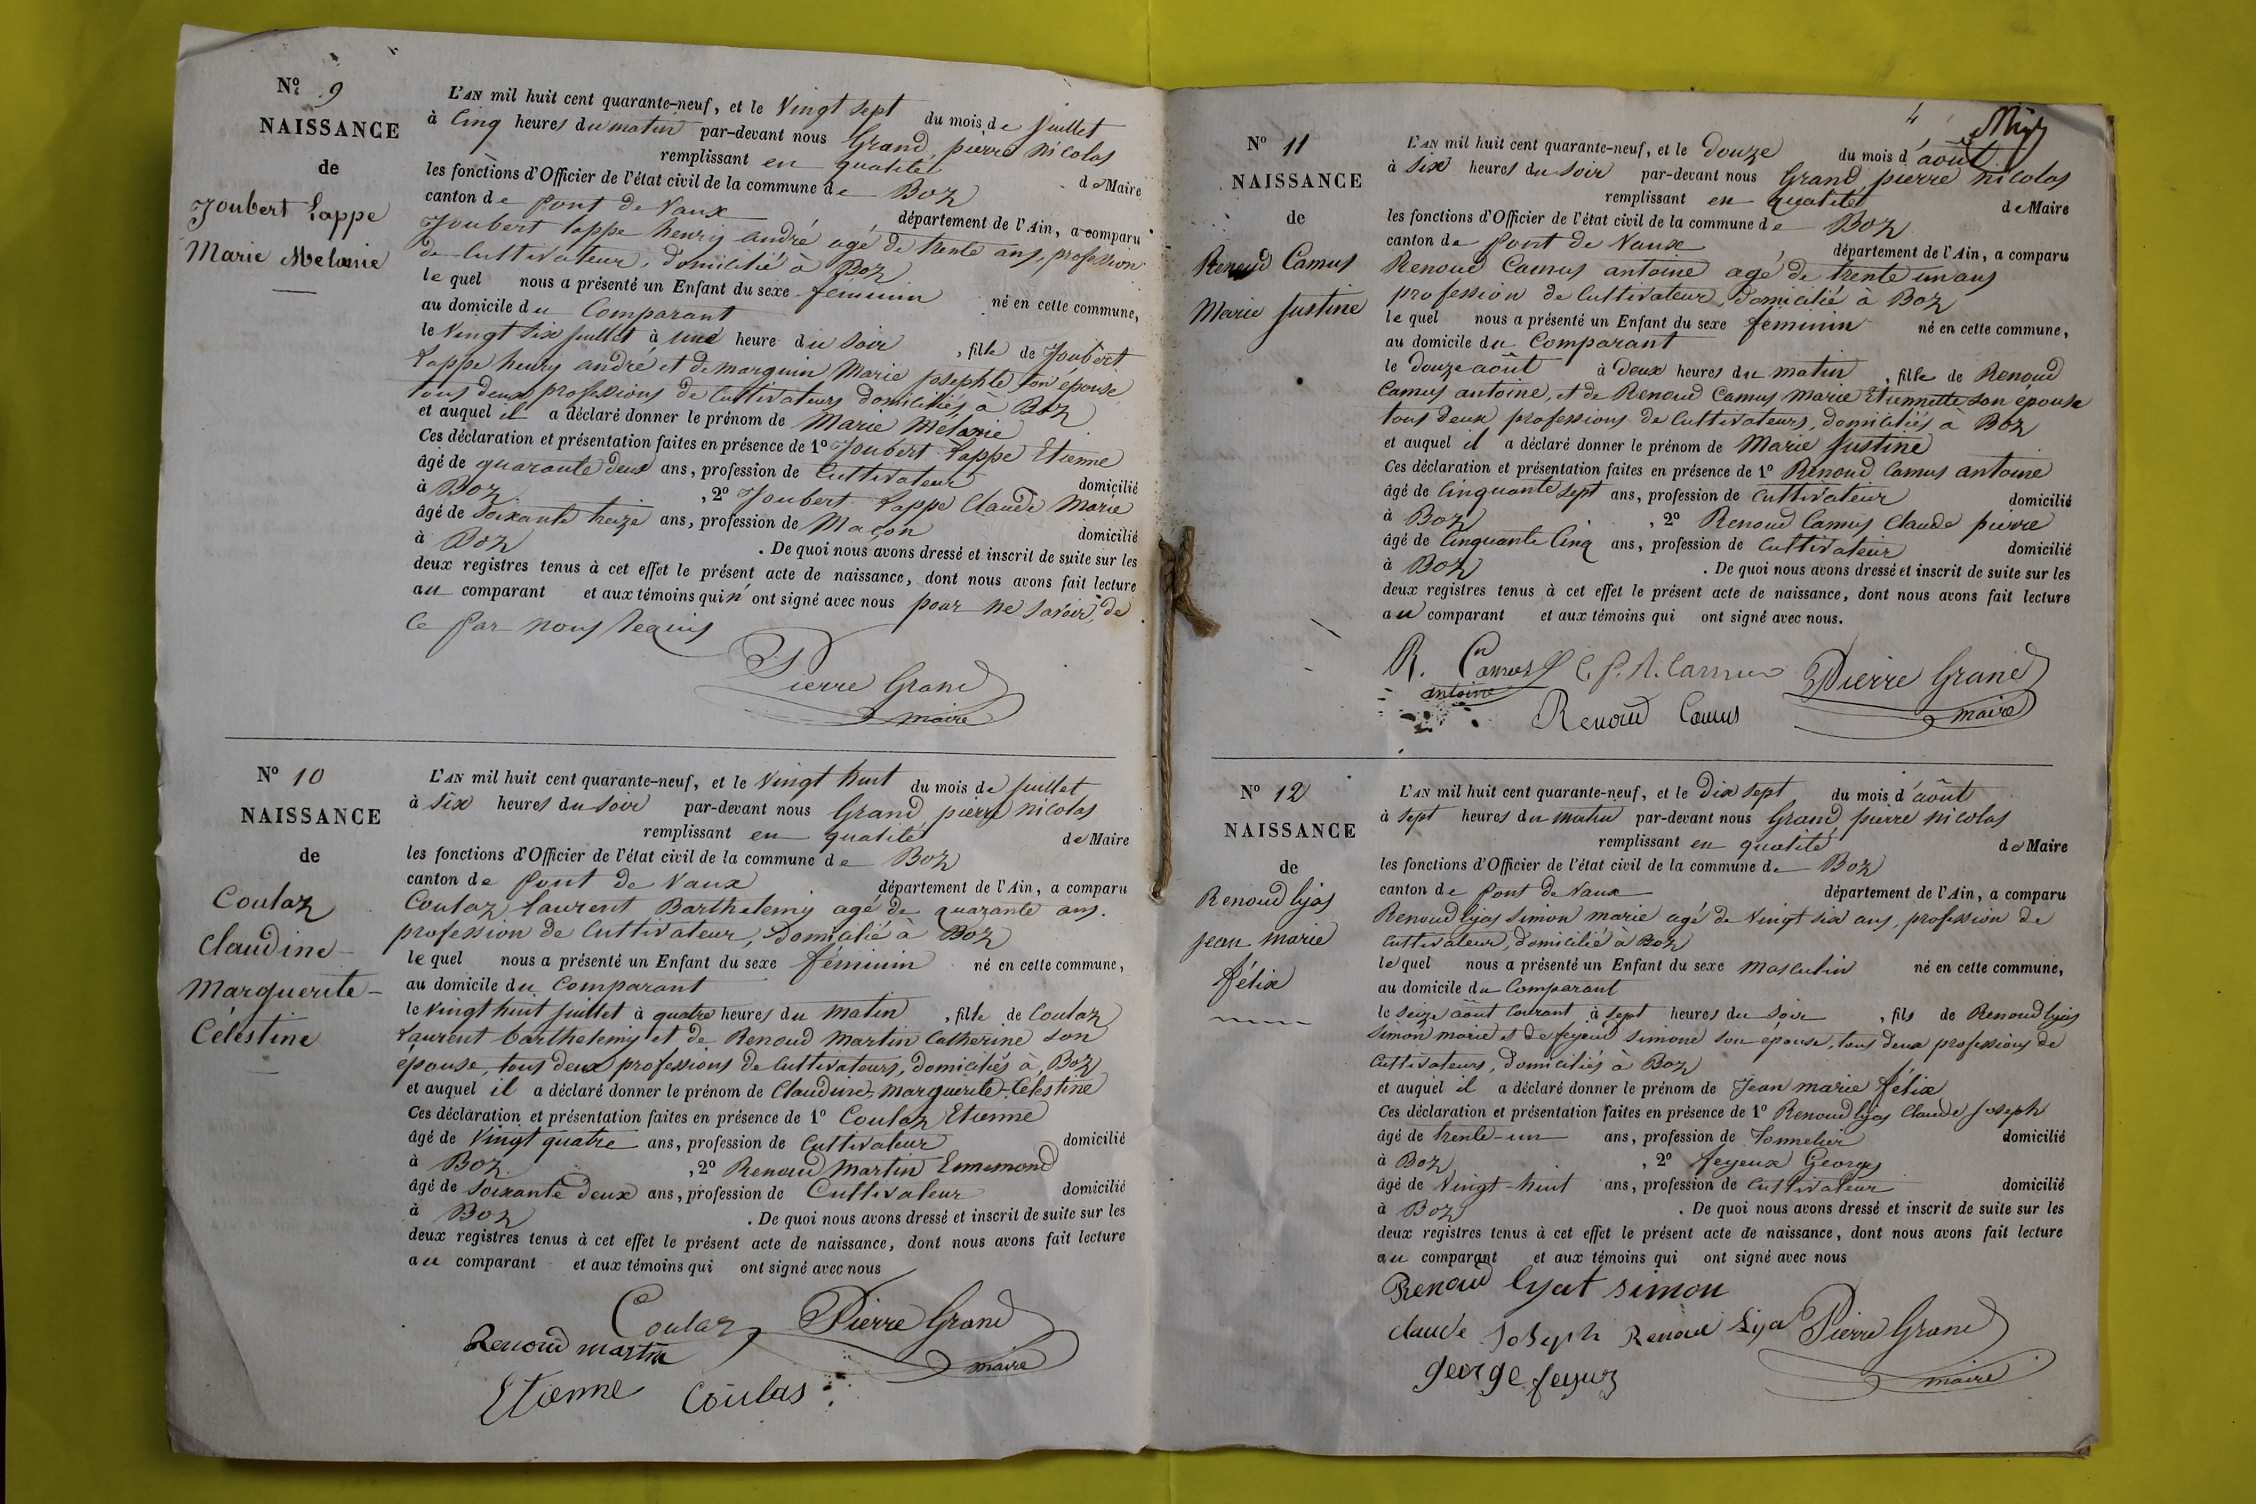 Nº 9
NAISSANCE
de
Joubert Lappe
Marie Melanie
L'AN mil huit cent quarante-neuf, et le Vingt sept du mois de Juillet
à Cinq heures du matin par-devant nous Grand pierre nicolas
remplissant en qualité de Maire
les fonctions d'Officier de l'état civil de la commune de Boz
canton de Pont de Vaux département de l'Ain, a comparu
Joubert Lappe henry andré agé de trente ans, profession
de Cultivateur, domicilié à Boz
le quel nous a présenté un Enfant du sexe féminin né en cette commune,
au domicile du Comparant
le Vingt six juillet à une heure du soir, fille de Joubert
Lappe henry andré et de marguin Marie josephte son épouse
tous deux professions de Cultivateurs domiciliés à Boz
et auquel il a déclaré donner le prénom de Marie Melanie
Ces déclaration et présentation faites en présence de 1º Joubert Lappe Etienne
âgé de quarante deux ans, profession de Cultivateur domicilié
à Boz, 2º Joubert Lappe Claude Marie
âgé de soixante treize ans, profession de Maçon domicilié
à Boz. De quoi nous avons dressé et inscrit de suite sur les
deux registres tenus à cet effet le présent acte de naissance, dont nous avons fait lecture
au comparant et aux témoins qui n'ont signé avec nous pour ne savoir, de
ce par nous requis
Pierre Grand
maire
Nº 10
NAISSANCE
de
Coulaz
Claudine
Marguerite
Célestine
L'AN mil huit cent quarante-neuf, et le Vingt huit du mois de juillet
à Six heures du soir par-devant nous Grand pierre nicolas
remplissant en qualité de Maire
les fonctions d'Officier de l'état civil de la commune de Boz
canton de Pont de Vaux département de l'Ain, a comparu
Coulaz Laurent Barthelemy agé de quarante ans.
profession de Cultivateur, domicilié à Boz
le quel nous a présenté un Enfant du sexe féminin né en cette commune,
au domicile du Comparant
le Vingt huit juillet à quatre heures du matin, fille de Coulaz
Laurent barthelemy et de Renoud Martin Catherine son
épouse, tous deux professions de Cultivateurs, domiciliés à Boz
et auquel il a déclaré donner le prénom de Claudine Marguerite Célestine
Ces déclaration et présentation faites en présence de 1º Coulaz Etienne
âgé de Vingt quatre ans, profession de Cultivateur domicilié
à Boz, 2º Renoud Martin Ennemond
âgé de soixante deux ans, profession de Cultivateur domicilié
à Boz. De quoi nous avons dressé et inscrit de suite sur les
deux registres tenus à cet effet le présent acte de naissance, dont nous avons fait lecture
au comparant et aux témoins qui ont signé avec nous
Coulaz Pierre Grand
Renoud martin maire
Etienne Coulas
4
Nº 11
NAISSANCE
de
Renoud Camus
Marie Justine
L'AN mil huit cent quarante-neuf, et le douze du mois d'août
à Six heures du soir par-devant nous Grand pierre nicolas
remplissant en qualité de Maire
les fonctions d'Officier de l'état civil de la commune de Boz
canton de Pont de Vaux département de l'Ain, a comparu
Renoud Camus antoine agé de trente un ans
profession de Cultivateur, domicilié à Boz
le quel nous a présenté un Enfant du sexe féminin né en cette commune,
au domicile du Comparant
le douze août à deux heures du matin, fille de Renoud
Camus antoine, et de Renoud Camus Marie Etiennette son épouse
tous deux professions de Cultivateurs, domiciliés à Boz
et auquel il a déclaré donner le prénom de Marie Justine
Ces déclaration et présentation faites en présence de 1º Renoud Camus antoine
âgé de Cinquante sept ans, profession de Cultivateur domicilié
à Boz, 2º Renoud Camus Claude pierre
âgé de Cinquante Cinq ans, profession de Cultivateur domicilié
à Boz. De quoi nous avons dressé et inscrit de suite sur les
deux registres tenus à cet effet le présent acte de naissance, dont nous avons fait lecture
au comparant et aux témoins qui ont signé avec nous.
R. Camus C. P. R. Camus Pierre Grand
antoine Renoud Camus maire
Nº 12
NAISSANCE
de
Renoud lyas
jean marie
félix
L'AN mil huit cent quarante-neuf, et le Dix sept du mois d'août
à sept heures du matin par-devant nous Grand pierre nicolas
remplissant en qualité de Maire
les fonctions d'Officier de l'état civil de la commune de Boz
canton de Pont de Vaux département de l'Ain, a comparu
Renoud lyas simon marie agé de Vingt six ans, profession de
Cultivateur, domicilié à Boz
le quel nous a présenté un Enfant du sexe masculin né en cette commune,
au domicile du Comparant
le seize août Courant à sept heures du soir, fils de Renoud lyas
simon marie et de feyeux simone son épouse, tous deux professions de
Cultivateurs, domiciliés à Boz
et auquel il a déclaré donner le prénom de Jean marie félix
Ces déclaration et présentation faites en présence de 1º Renoud lyas Claude Joseph
âgé de trente-un ans, profession de Tonnelier domicilié
à Boz, 2º feyeux Georges
âgé de Vingt-huit ans, profession de Cultivateur domicilié
à Boz. De quoi nous avons dressé et inscrit de suite sur les
deux registres tenus à cet effet le présent acte de naissance, dont nous avons fait lecture
au comparant et aux témoins qui ont signé avec nous
Renoud lyat simon
claude Joseph Renoud Lya Pierre Grand
george feyeux maire